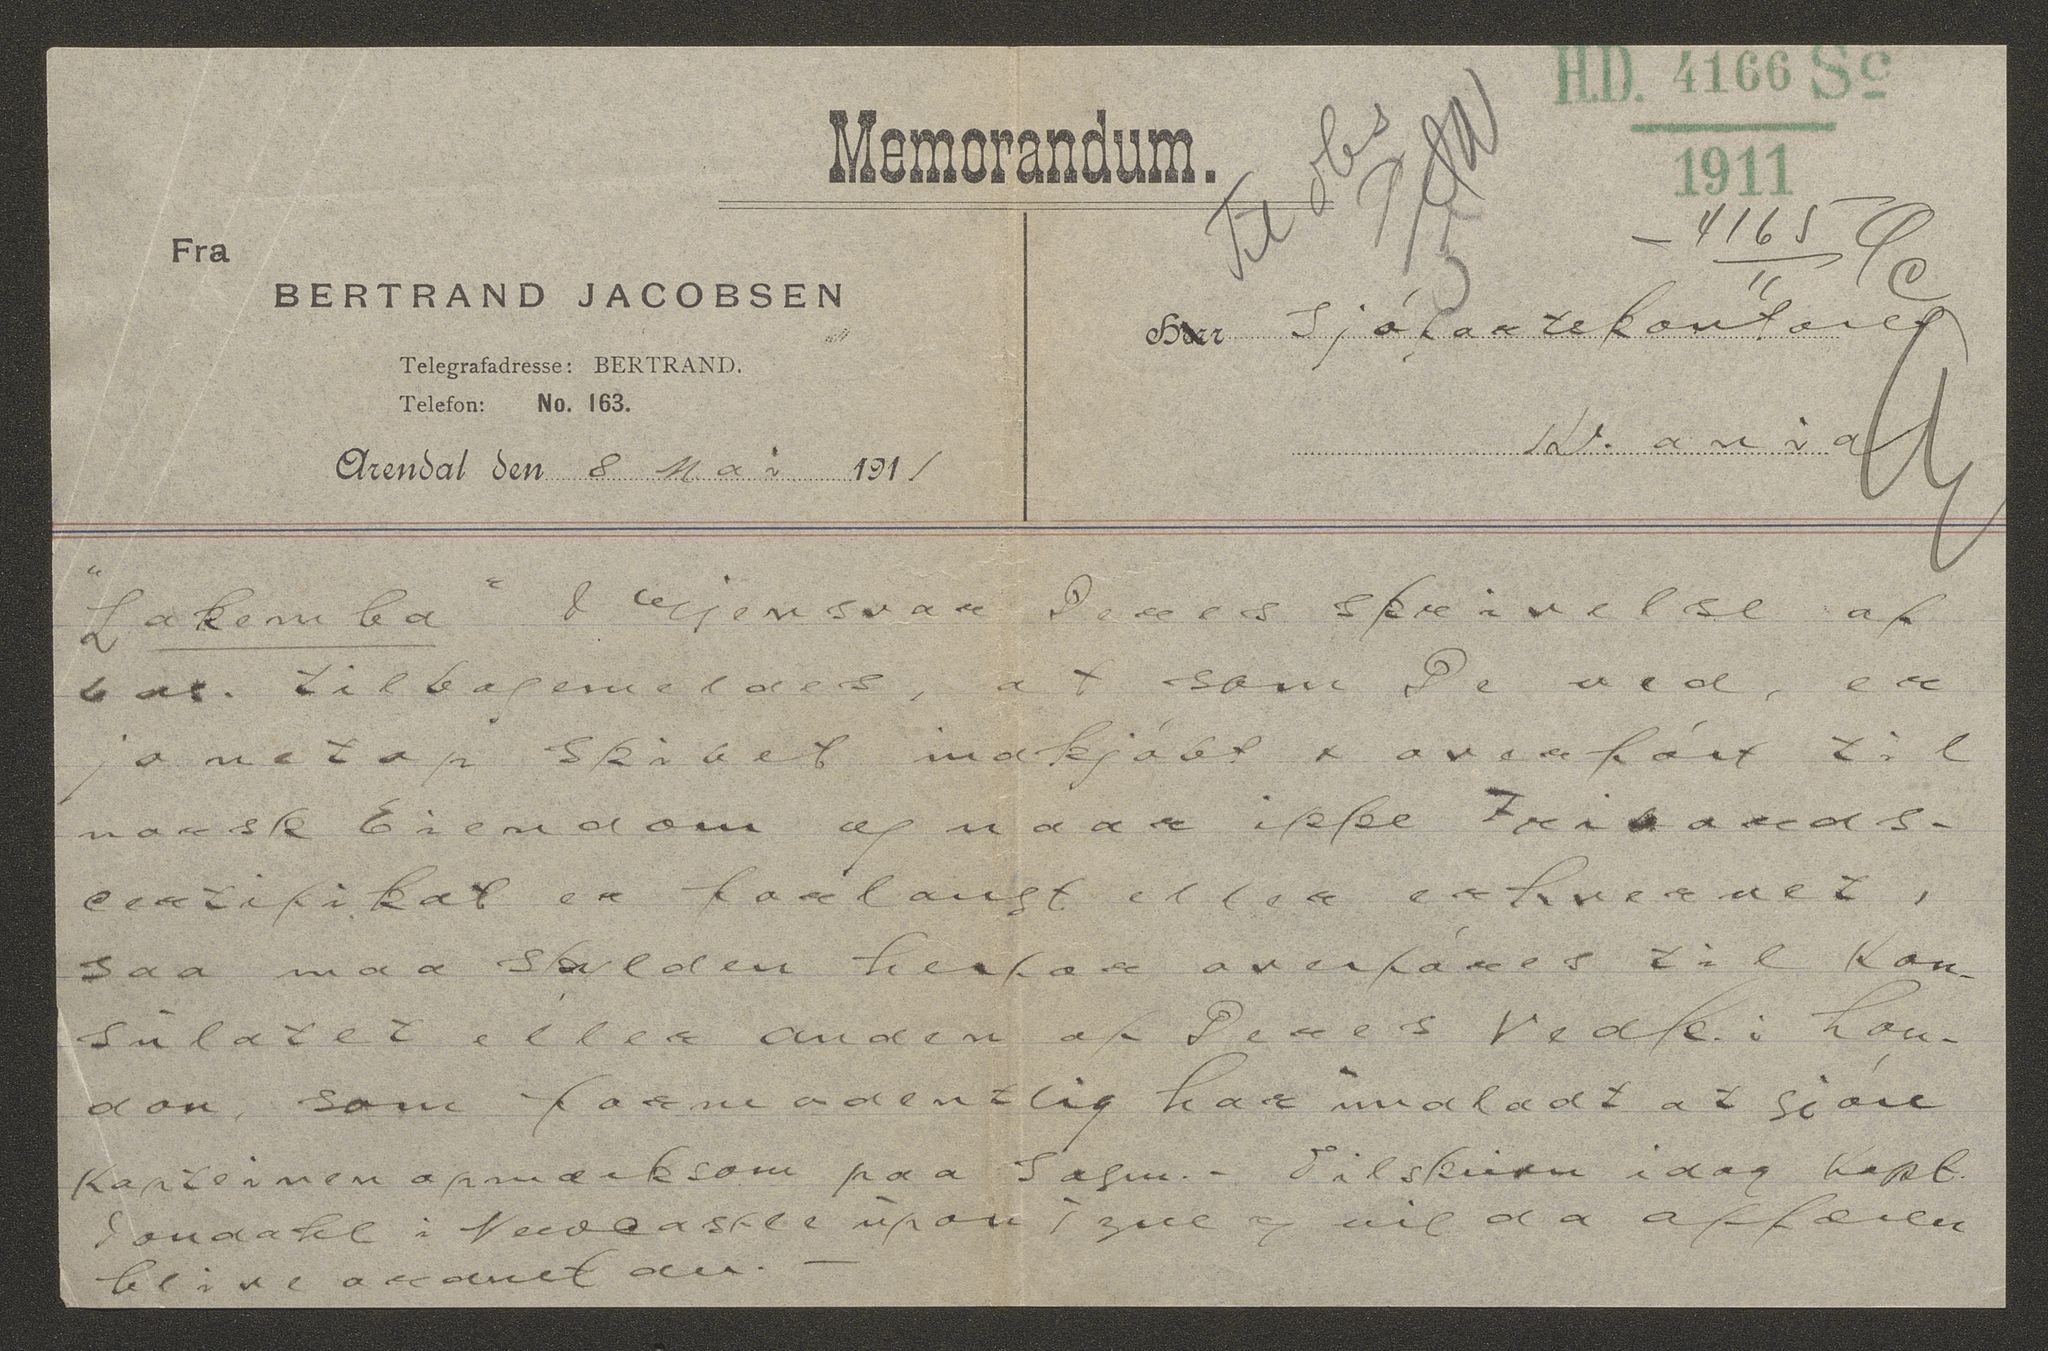 Memorandum.
H.D. 4166 Sc
1911
Til obs
- 4165 Sc
11
Fra
BERTRAND JACOBSEN
Telegrafadresse: BERTRAND.
Telefon: No. 163.
Arendal den 8 Mai 1911
Herr Sjöfartskontoret
Kr.ania
"Lakemba" I Gjensvar Deres skrivelse af
tilbagemeldes, at som De ved, er
jo netop skibet indkjöbt & overfört til
norsk Eiendom og naar ikke Fribords-
certifikat er forlangt eller erhvervet,
saa maa skylden herfor overföres til Kon-
sulatet eller anden af Deres Vedk. i Lon-
don, som formodentlig har undladt at gjöre
Kapteinen opmærksom paa Sagen. - Tilskriver idag Kapt.
i Newcastle upon Tyne og vil da affæren
blive ordnet der. -